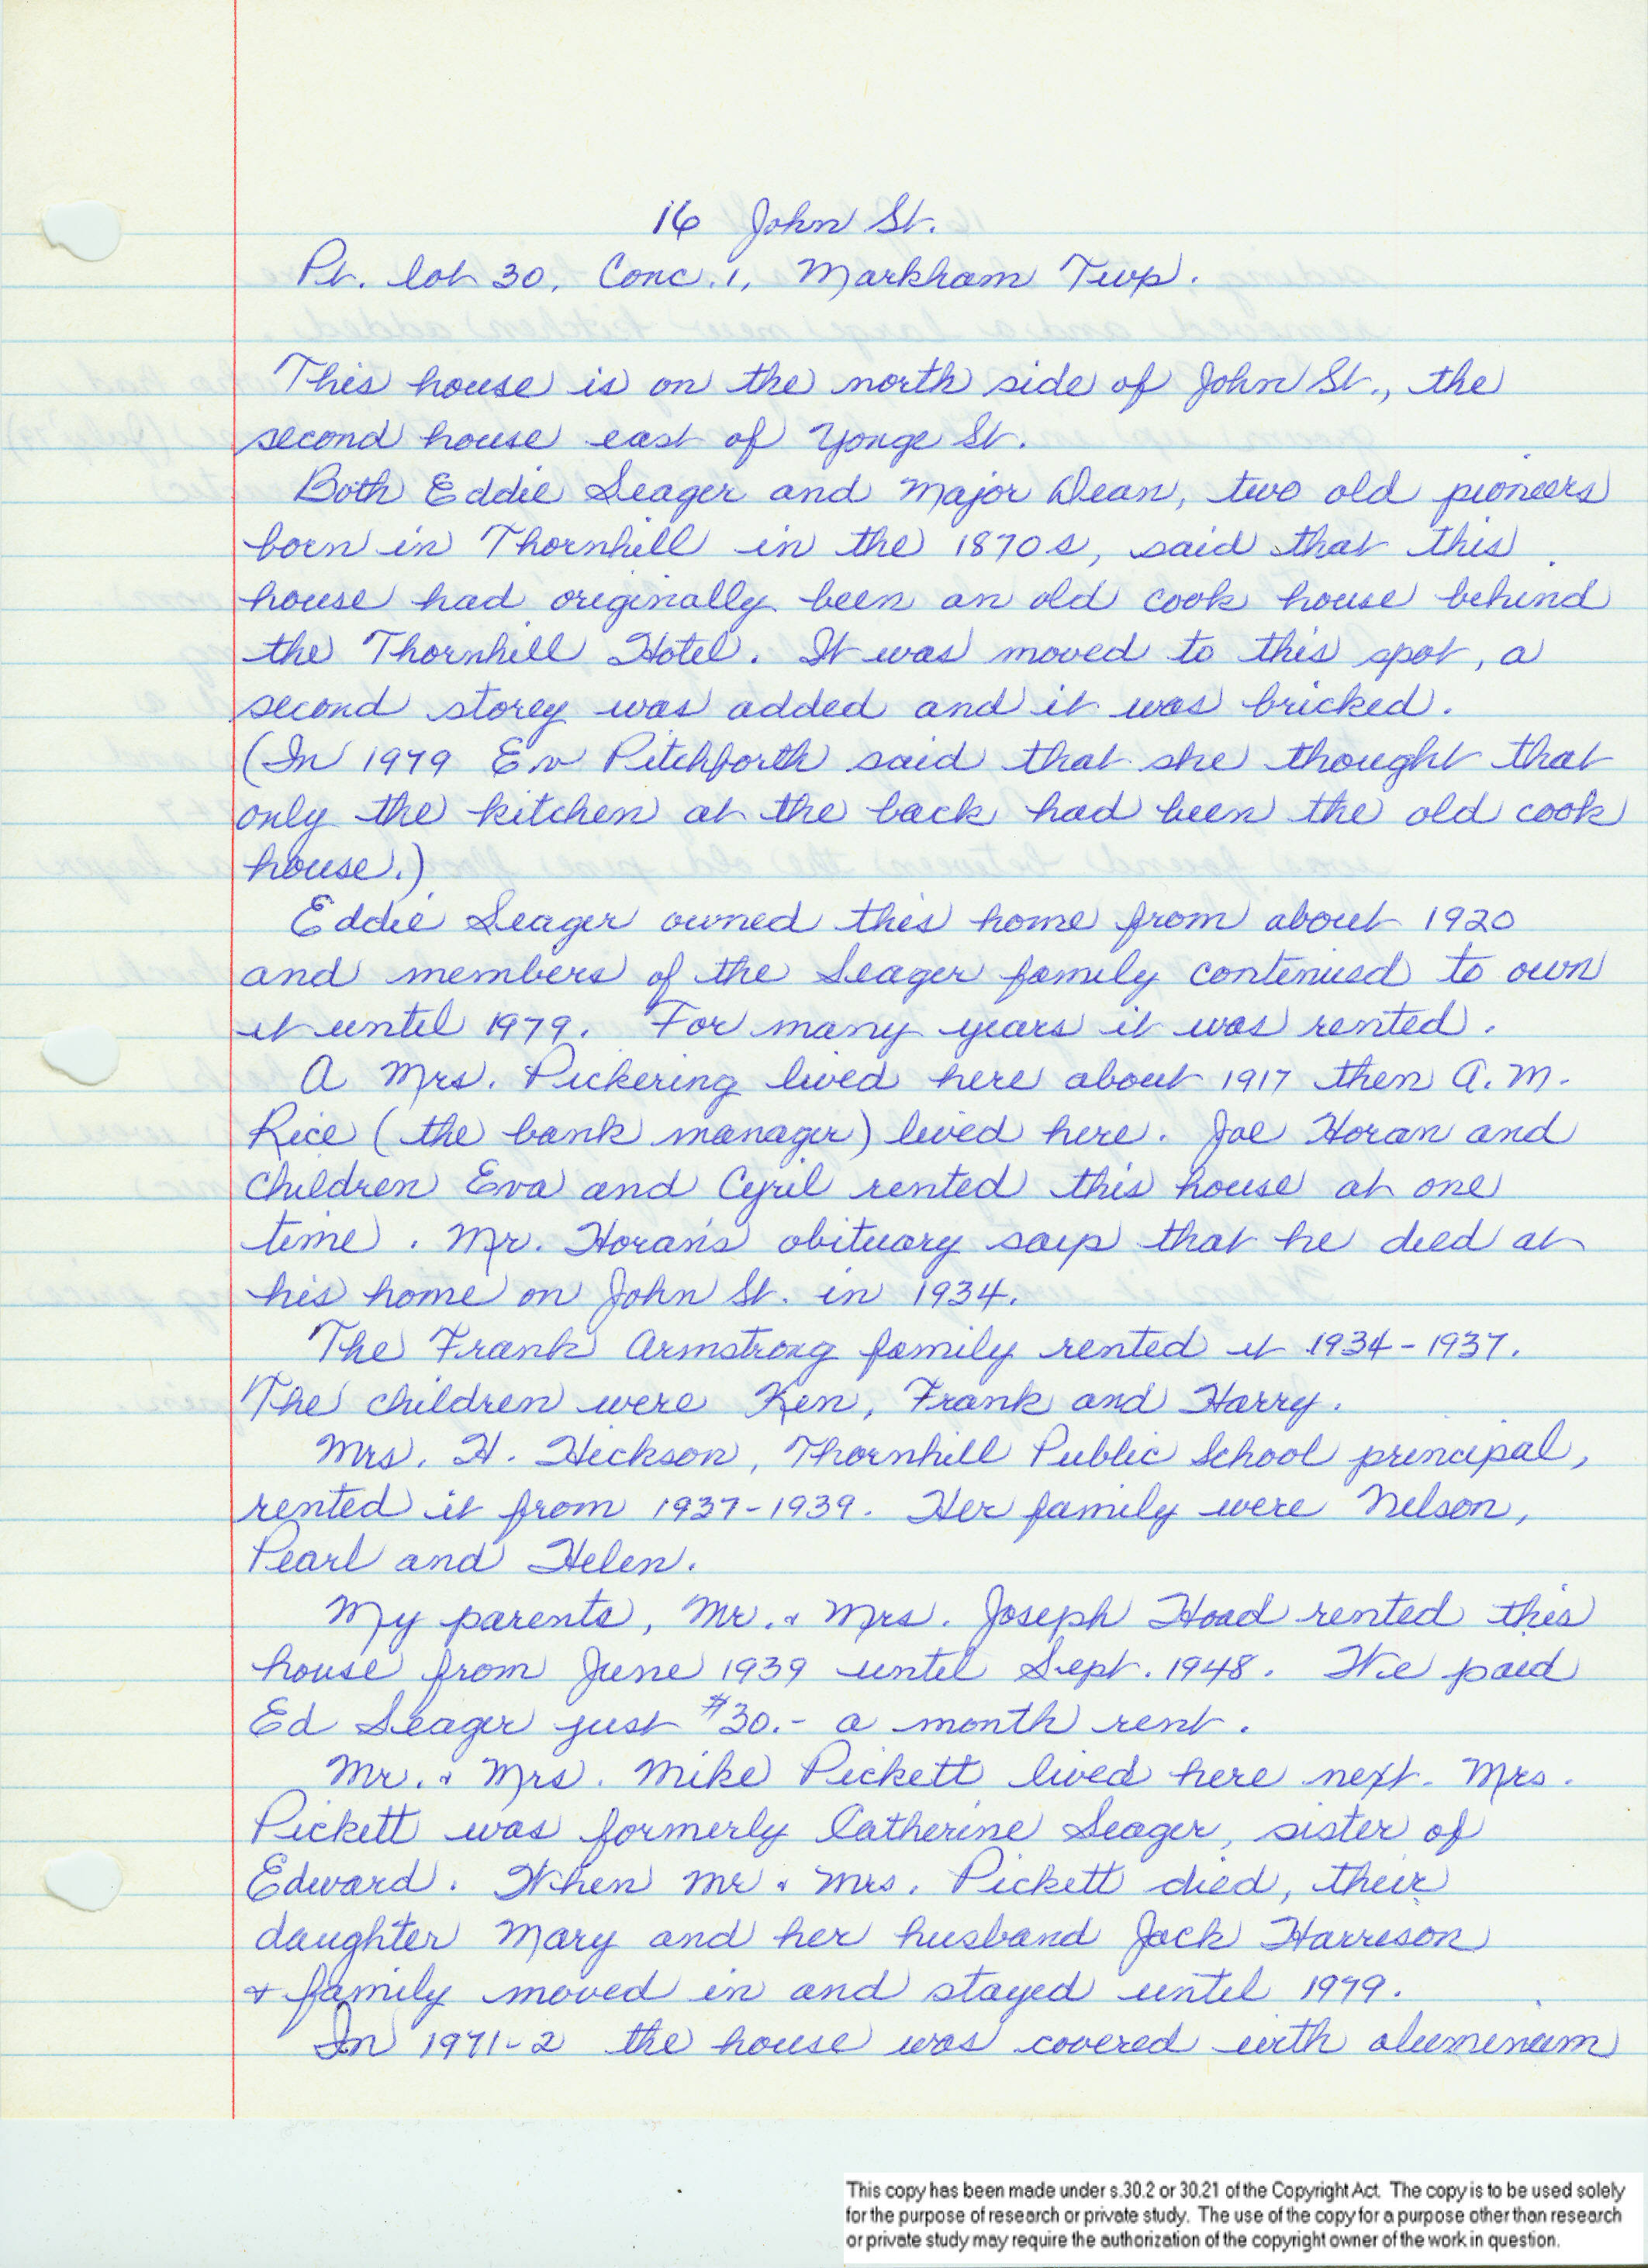 16 John St.
Pt. lot 30, Conc. 1, Markham Twp.
This house is on the north side of John St., the
second house east of Yonge St.
Both Eddie Seager and Major Dean, two old pioneers
born in Thornhill in the 1870s, said that this
house had originally been an old cook house behind
the Thornhill Hotel. It was moved to this spot, a
second storey was added and it was bricked.
(In 1979 Ev Pitchforth said that she thought that
only the kitchen at the back had been the old cook
house.)
Eddie Seager owned this home from about 1920
and members of the Seager family continued to own
it until 1979. For many years it was rented.
A Mrs. Pickering lived here about 1917 then A. M.
Rice (the bank manager) lived here. Joe Horan and
children Eva and Cyril rented this house at one
time. Mr. Horan's obituary says that he died at
his home on John St. in 1934.
The Frank Armstrong family rented it 1934-1937.
The children were Ken, Frank and Harry.
Mrs. H. Hickson, Thornhill Public School principal,
rented it from 1937-1939. Her family were Nelson,
Pearl and Helen.
My parents, Mr. & Mrs. Joseph Hoad rented this
house from June 1939 until Sept. 1948. We paid
Ed Seager just $30.- a month rent.
Mr. & Mrs. Mike Pickett lived here next. Mrs.
Pickett was formerly Catherine Seager, sister of
Edward. When Mr & Mrs. Pickett died, their
daughter Mary and her husband Jack Harrison
& family moved in and stayed until 1979.
In 1971-2 the house was covered with aluminum
This copy has been made under s.30.2 or 30.21 of the Copyright Act. The copy is to be used solely
for the purpose of research or private study. The use of the copy for a purpose other than research
or private study may require the authorization of the copyright owner of the work in question.